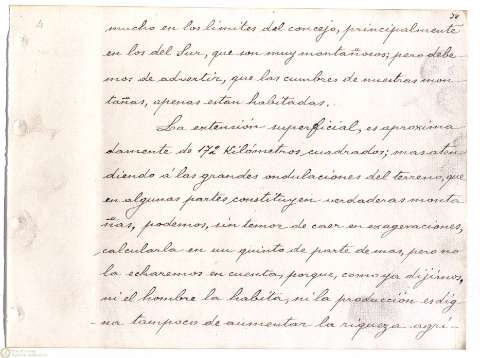 mucho en los límites del concejo, principalmente
en los del Sur, que son muy montañosos; pero debe
mos de advertir, que las cumbres de nuestras mon-
tañas, apenas están habitadas.
La extensión superficial, es aproxima
damente de 172 Kilómetros cuadrados; mas aten
diendo á las grandes ondulaciones del terreno, que
en algunas partes constituyen verdaderas monta
ñas, podemos, sin temor de caer en exageraciones,
calcularla en un quinto de parte de mas, pero no
la echaremos en cuenta, porque, como ya dijimos,
ni el hombre la habita, ni la producción es dig
-na tampoco de aumentar la riqueza agrí-